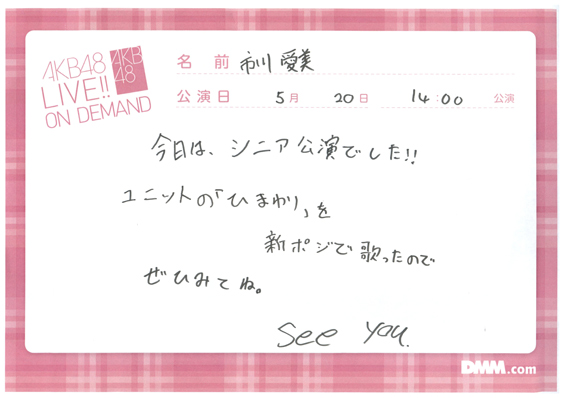 AKB48
LIVE!!
ON DEMAND
AKB
48
名 前 市川 愛美
公演日 5月 20日 14:00 公演
今日は、シニア公演でした!!
ユニットの「ひまわり」を
新ポジで歌ったので
ぜひみてね。
see you.
DMM.com